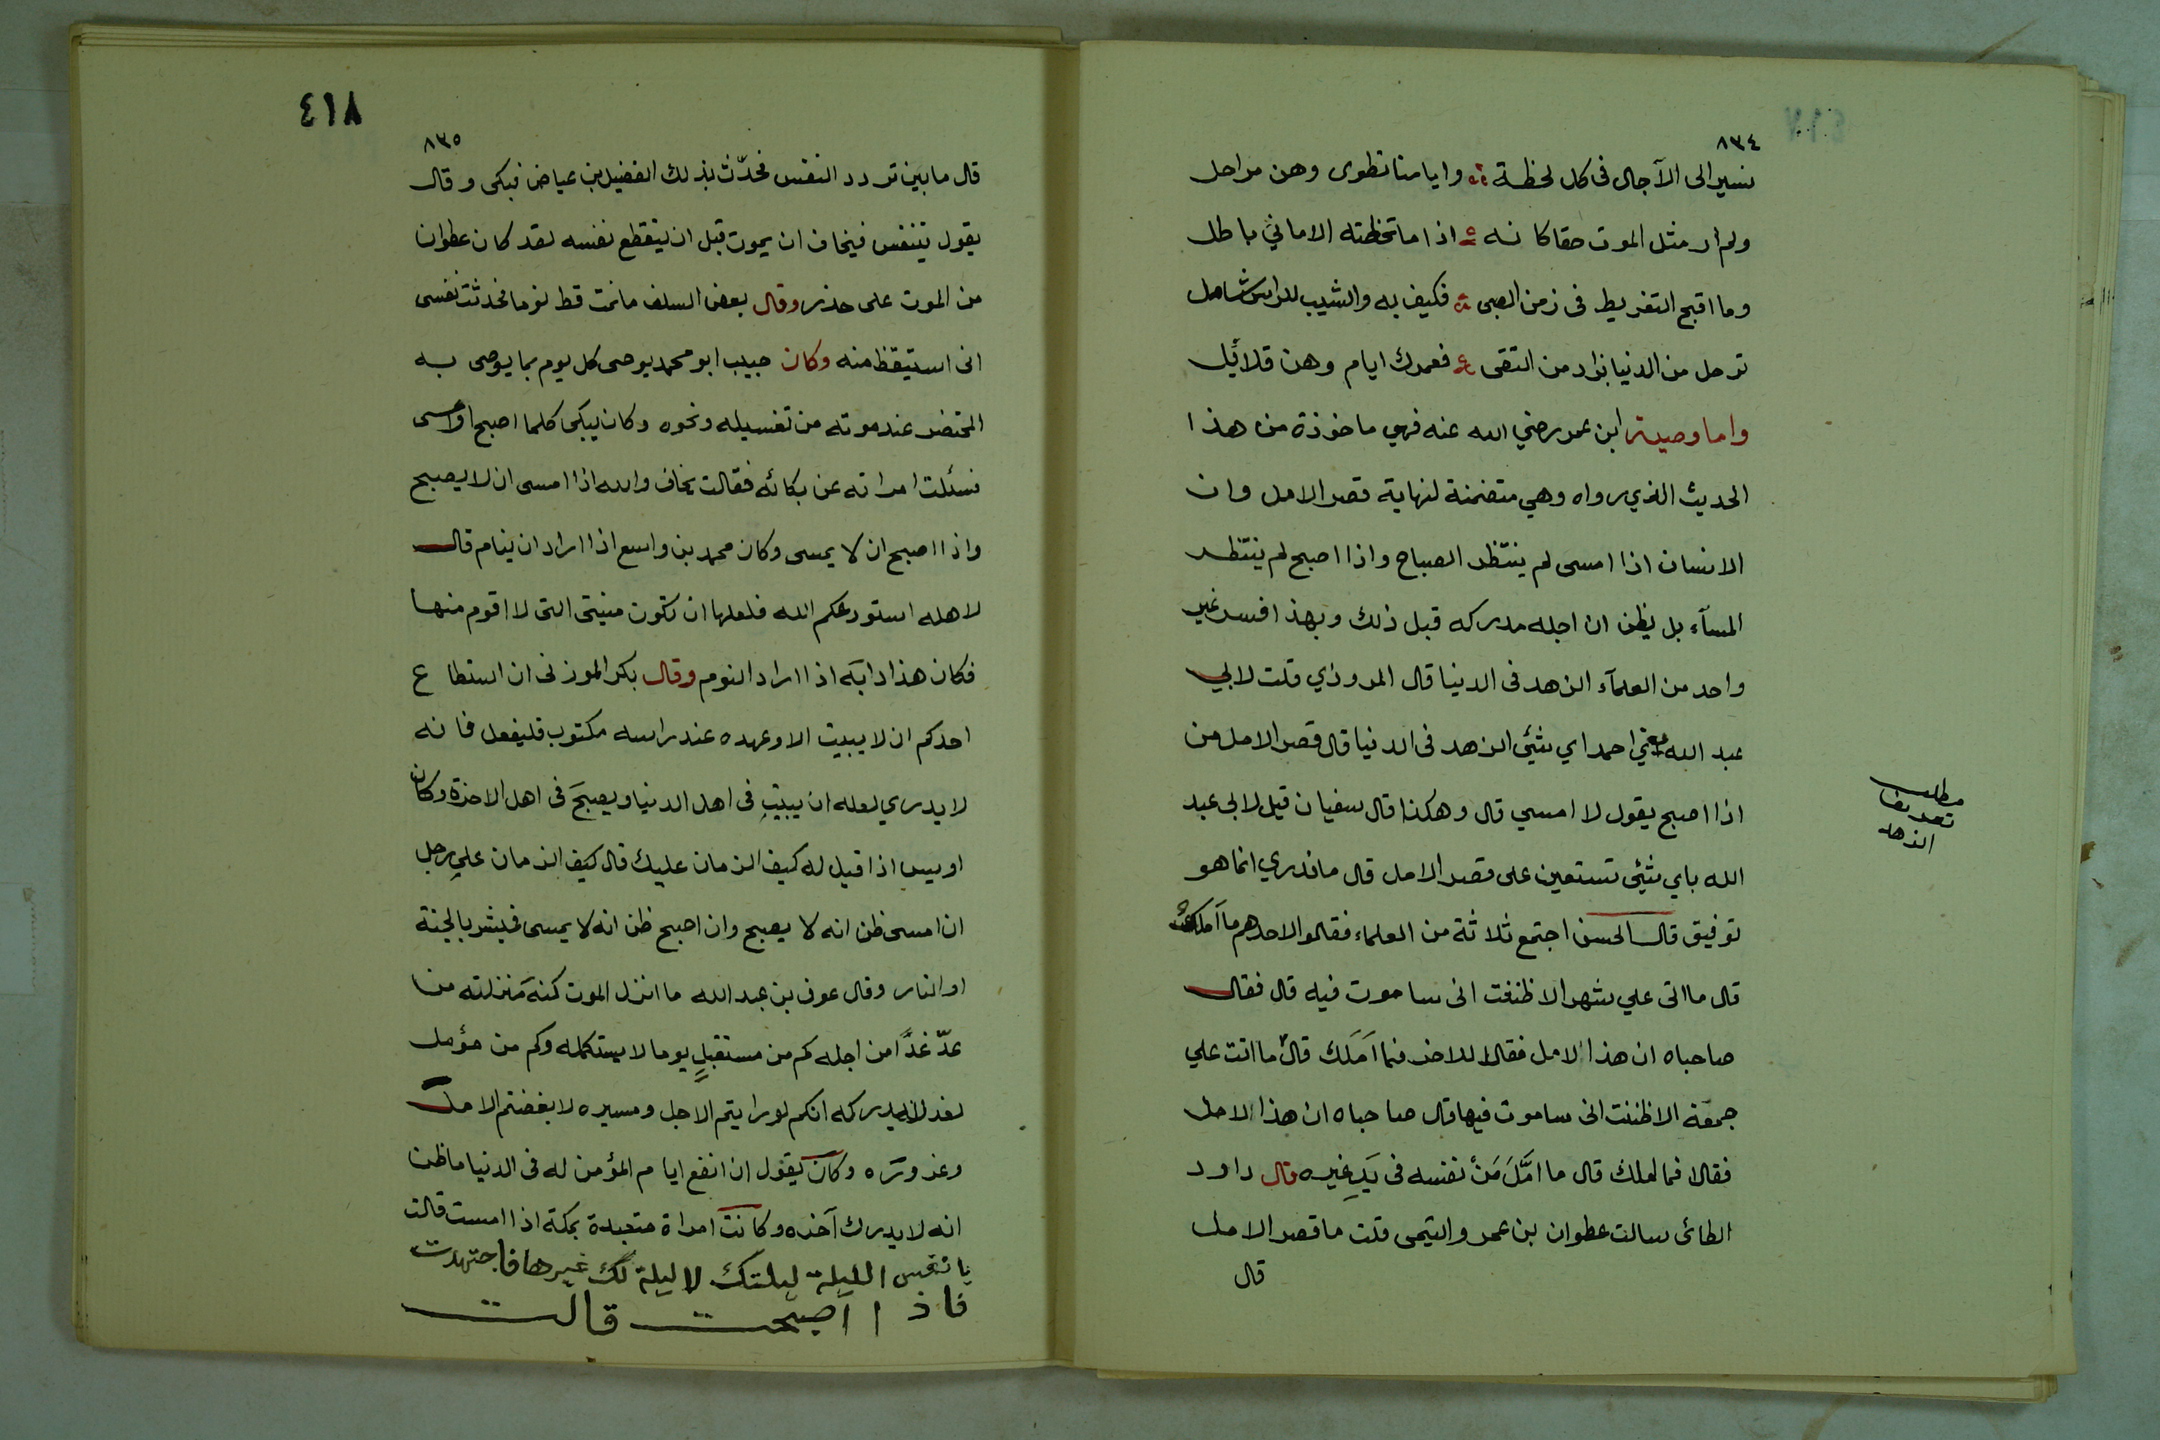 ٨٣٤
نسير الى الآجال فى كل لحظة وايامنا تطوى وهن مراحل
ولم ار مثل الموت حقا كانه اذا ما تخطته الاماني باطل
وما اقبح التفريط فى زمن الصبى فكيف به والشيب للراس شامل
ترحل من الدنيا بزاد من التقى فعمرك ايام وهن قلائل
واما وصية ابن عمر رضي الله عنه فهي ماخوذة من هذا
الحديث الذي رواه وهي متضمنة لنهاية قصر الامل وان
الانسان اذا امسى لم ينتظر الصباح واذا اصبح لم ينتظر
المسآء بل يظن ان اجله مدركه قبل ذلك وبهذا فسر غير
واحد من العلمآء الزهد فى الدنيا قال المروذي قلت لابي
عبد الله يعني احمد اي شئي الزهد فى الدنيا قال قصر الامل من
اذا اصبح يقول لا امسي قال وهكذا قال سفيان قيل لابى عبد
الله باي شئي تستعين على قصر الامل قال ما ندري انما هو
توفيق قال الحسن اجتمع ثلاثة من العلماء فقالوا لاحدهم ما آملك
قال ما اتى علي شهر الا ظننت انى ساموت فيه قال فقال
صاحباه ان هذا الامل فقالا للاخر فما اَمَلك قال ما اتت علي
جمعة الا ظننت انى ساموت فيها قال صاحباه ان هذا الامل
فقالا فما املك قال ما امَّلَ مَنْ نفسه فى يَدِ غيره قال داود
الطائى سالت عطوان بن عمرو التيمى قلت ما قصر الامل
قال
مطلب
تعريف
الزهد
٤١٨
٨٣٥
قال ما بين تردد النفس فحدّث بذلك الفضيل بن عياض فبكى وقال
يقول يتنفس فيخاف ان يموت قبل ان ينقطع نفسه لقد كان عطوان
من الموت على حذر وقال بعض السلف ما نمت قط نوما فحدثت نفسى
انى استيقظ منه وكان حبيب ابو محمد يوصى كل يوم بما يوصى به
المحتضر عند موته من تغسيله ونحوه وكان يبكى كلما اصبح او امسى
فسئلت امراته عن بكائه فقالت يخاف والله اذا امسى ان لا يصبح
واذا اصبح ان لا يمسى وكان محمد بن واسع اذا اراد ان ينام قال
لاهله استودعكم الله فلعلها ان تكون منيتى التى لا اقوم منها
فكان هذا دابَه اذا اراد النوم وقال بكر المزنى ان استطاع
احدكم ان لا يبيت الا وعهده عند راسه مكتوب فليفعل فانه
لا يدري لعله ان يبيت فى اهل الدنيا ويصبحَ فى اهل الاخرة وكان
اويس اذا قيل له كيف الزمان عليك قال كيف الزمان على رجل
ان امسى ظن انه لا يصبح وان اصبح ظن انه لا يمسى فيبشر بالجنة
او النار وقال عون بن عبد الله ما انزل الموت كنهَ منزلته من
عدّ غدًا من اجله كم من مستقبلٍ يوما لا يستكمله وكم من مؤمل
لغد لا يدركه انكم لو رايتم الاجل ومسيره لابغضتم الامل
وغروره وكان يقول ان انفع ايام المؤمن له فى الدنيا ما ظن
انه لا يدرك آخره وكانت امراة متعبدة بمكة اذا امست قالت
يا نفس الليلة ليلتك لا ليلة لك غيرها فاجتهدت
فاذا اصبحت قالت